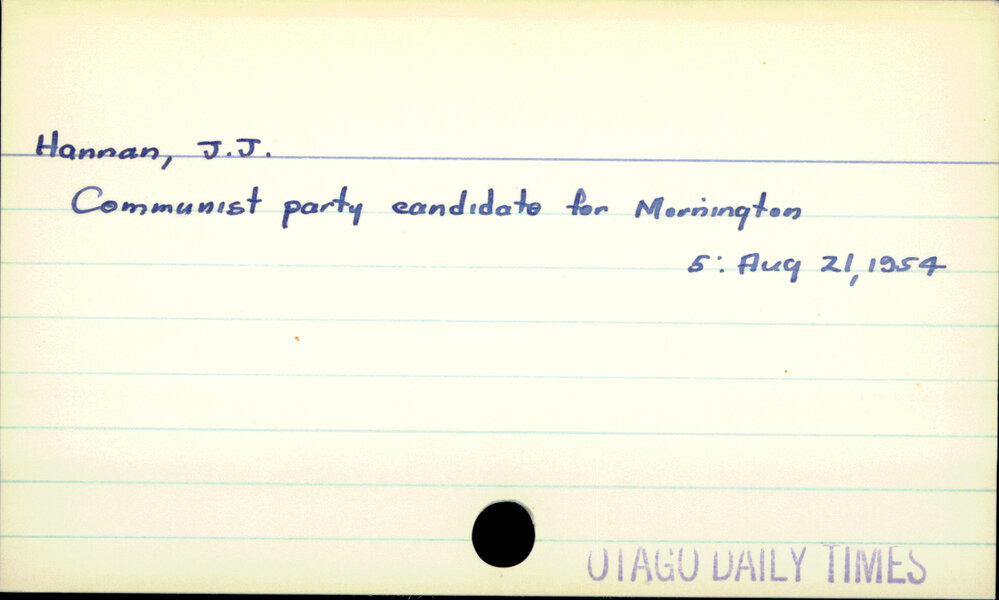 Hannan, J.J.
Communist party candidate for Mornington
5: Aug 21, 1954
OTAGO DAILY TIMES